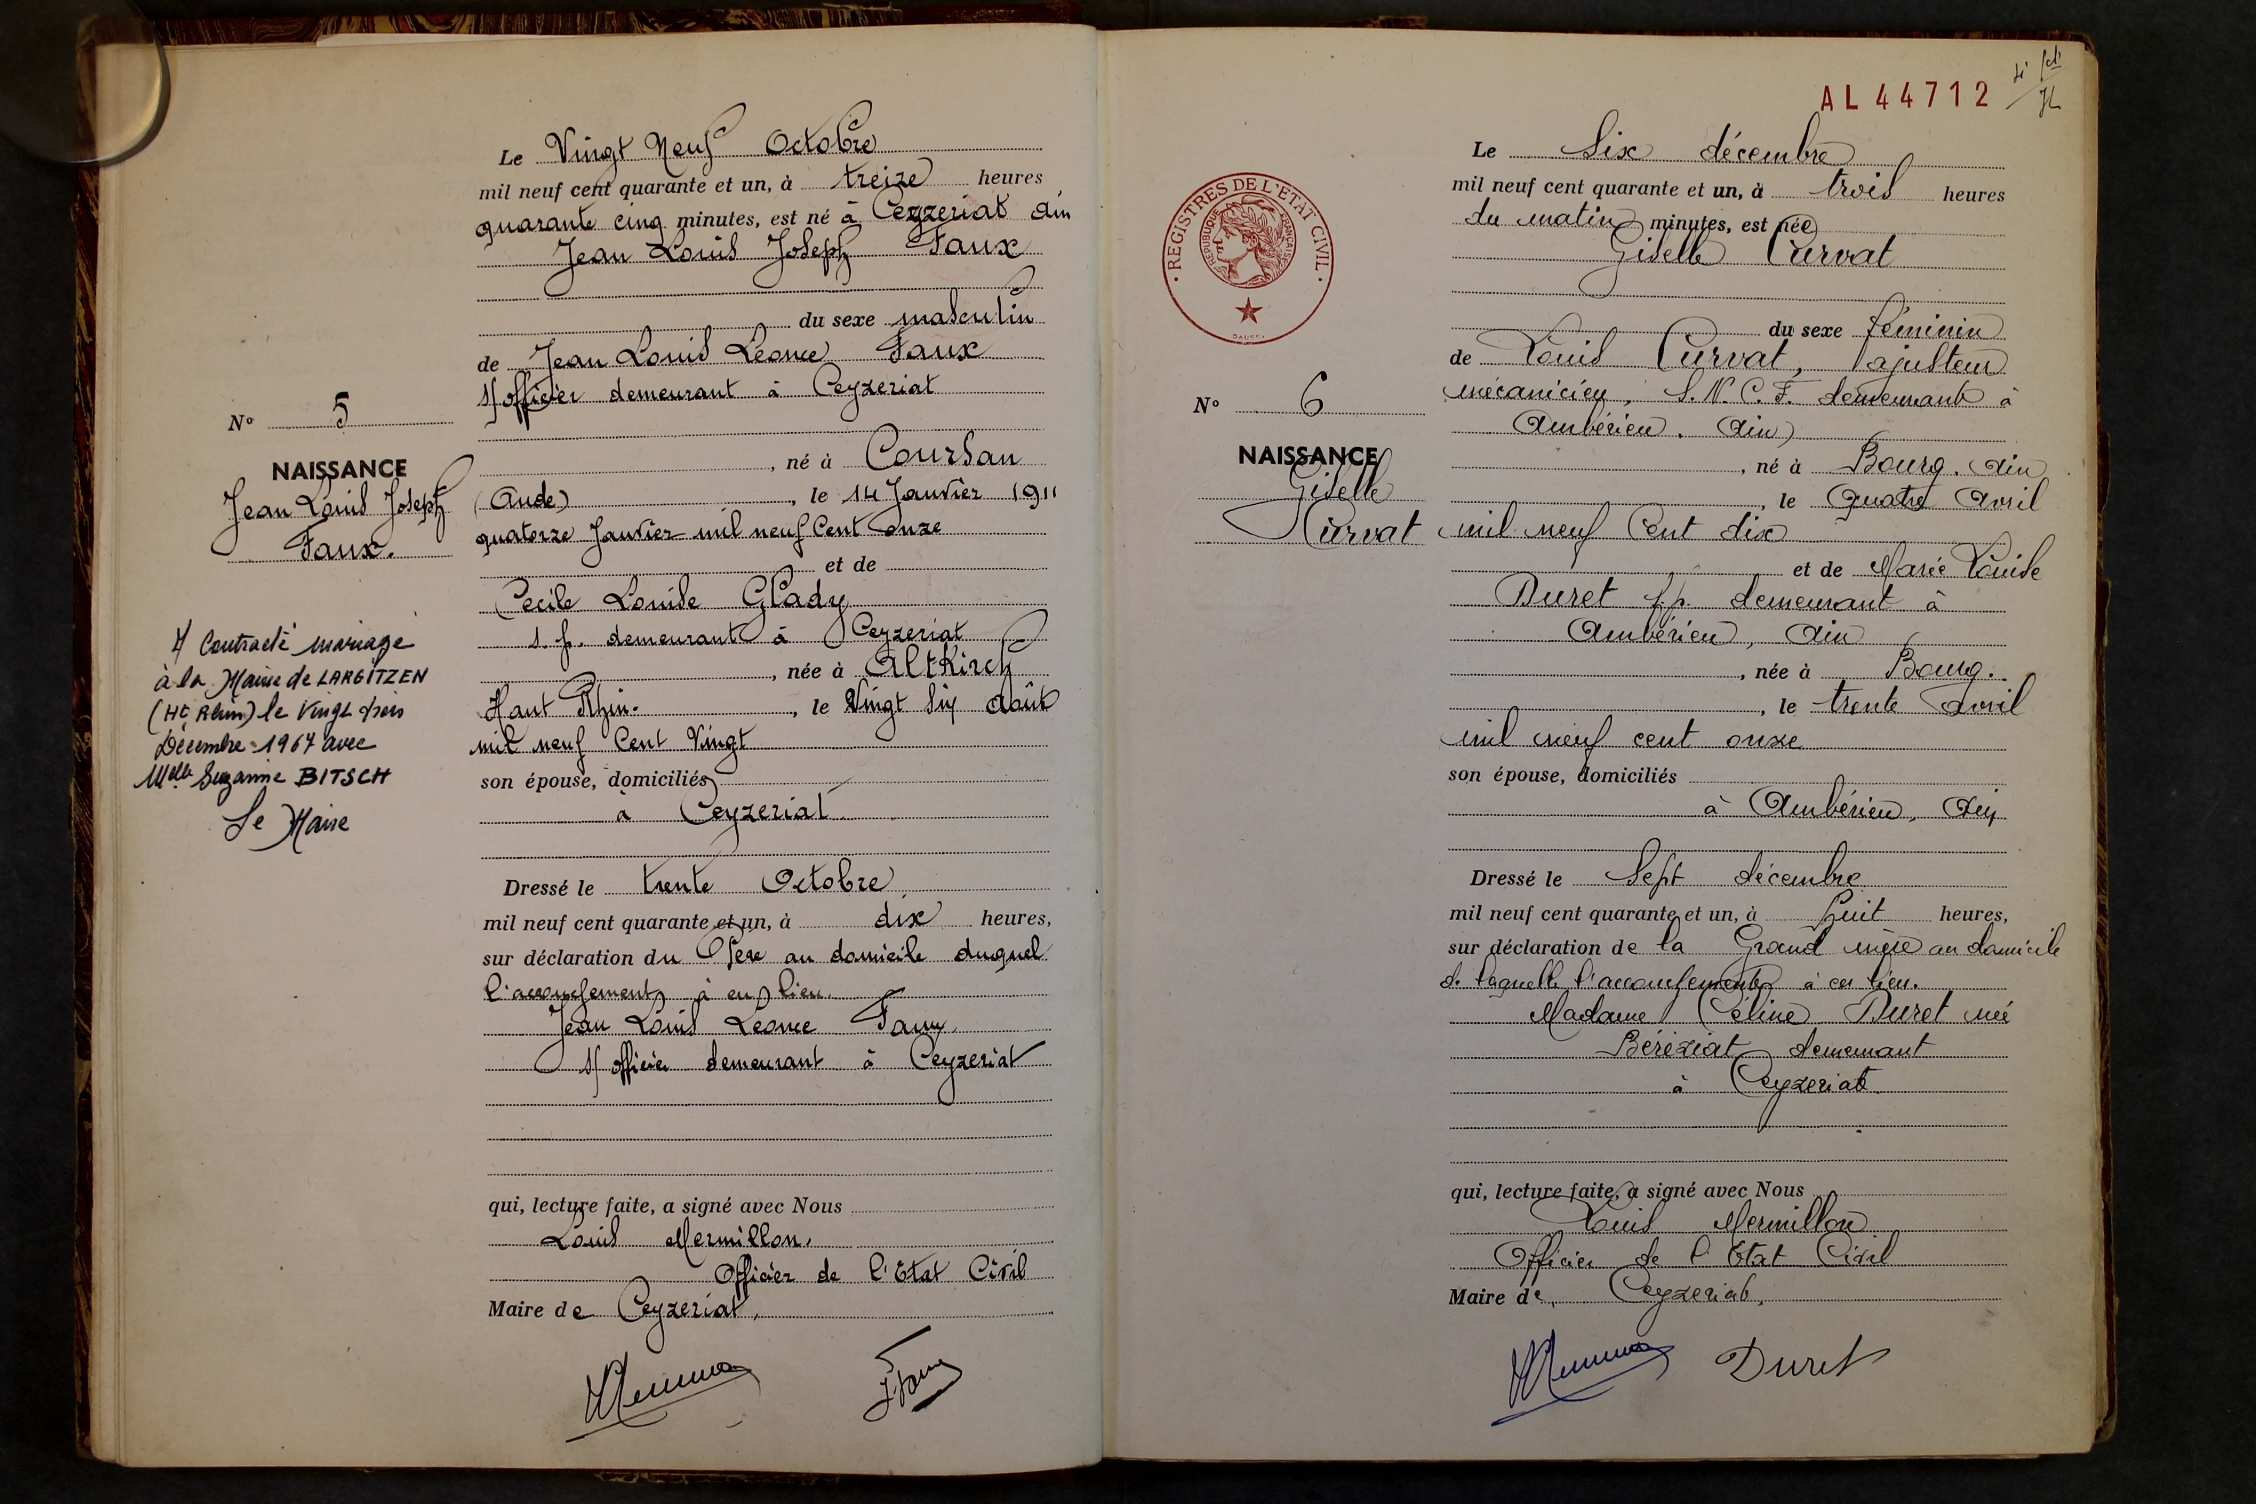 Le Vingt Neuf Octobre
mil neuf cent quarante et un, à treize heures
quarante cinq minutes, est né à Ceyzeriat Ain
Jean Louis Joseph Faux
du sexe masculin
de Jean Louis Léonce Faux
s/officier demeurant à Ceyzeriat
, né à Coursan
(Aude) , le 14 Janvier 1911
quatorze Janvier mil neuf Cent onze
et de
Cecile Louise Glady
s. p. demeurant à Ceyzeriat
, née à Altkirch
Haut Rhin. , le Vingt Six Août
mil neuf Cent Vingt
son épouse, domiciliés
à Ceyzeriat
Dressé le trente Octobre
mil neuf cent quarante et un, à dix heures,
sur déclaration du Père au domicile duquel
l'accouchement à eu lieu.
Jean Louis Léonce Faux.
s/officier demeurant à Ceyzeriat
qui, lecture faite, a signé avec Nous
Louis Mermillon.
Officier de l'Etat Civil
Maire de Ceyzeriat.
N° 5
NAISSANCE
Jean Louis Joseph
Faux.
Contracté mariage
à la Mairie de LARGITZEN
(Ht Rhin) le Vingt trois
Décembre 1967 avec
Melle Suzanne BITSCH
Le Maire
AL 44712
REGISTRES DE L'ETAT CIVIL
REPUBLIQUE FRANÇAISE
N° 6
NAISSANCE
Giselle
Curvat
Le Six décembre
mil neuf cent quarante et un, à trois heures
du matin minutes, est née
Giselle Curvat
du sexe féminin
de Louis Curvat, ajusteur
mécanicien, S.N.C.F. demeurant à
Ambérieu. Ain
, né à Bourg. Ain
, le Quatre Avril
mil neuf Cent dix
et de Marie Louise
Duret s.p. demeurant à
Ambérieu, Ain
, née à Bourg.
, le trente Avril
mil neuf cent onze
son épouse, domiciliés
à Ambérieu, Ain
Dressé le Sept décembre
mil neuf cent quarante et un, à huit heures,
sur déclaration de la Grand mère au domicile
de laquelle l'accouchement à eu lieu.
Madame Céline Duret née
Béréziat demeurant
à Ceyzeriat
qui, lecture faite, a signé avec Nous
Louis Mermillon
Officier de l'Etat Civil
Maire de, Ceyzeriat,
Duret